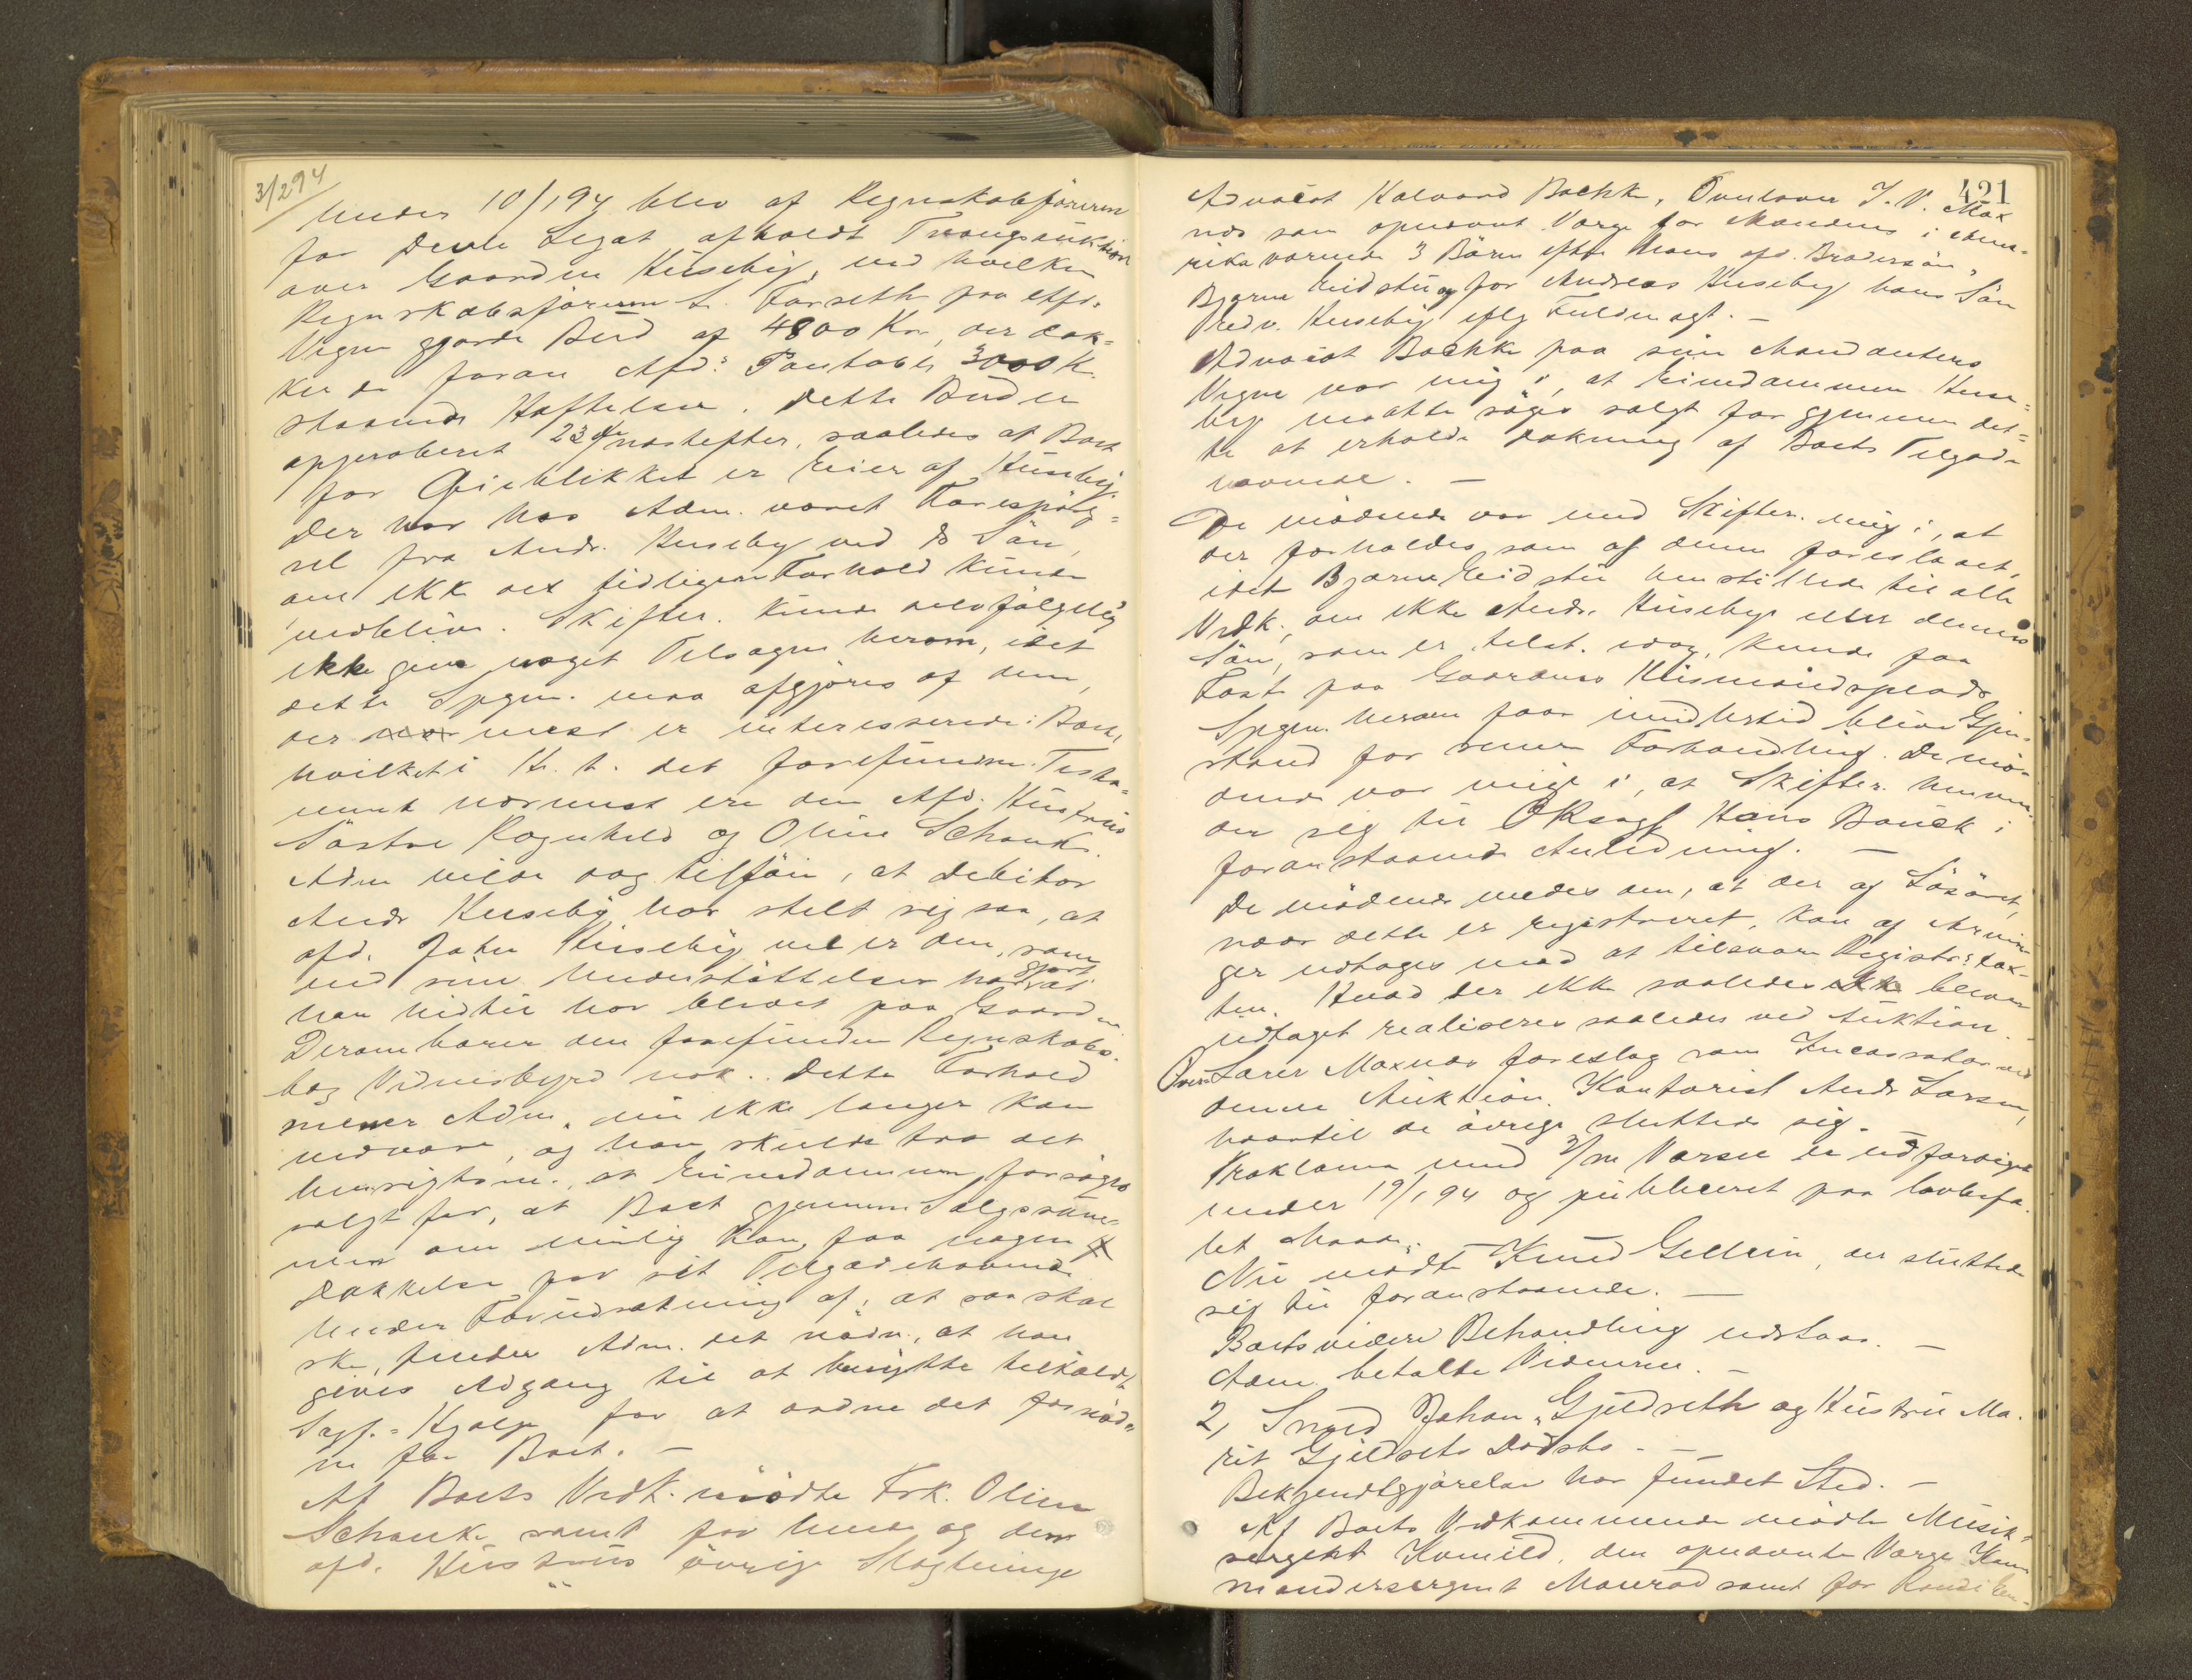 3/294
Under 10/1 94 blev af Regnskabsföreren
for Deule Legat afholdt Tvangsauktion
over Gaarden Huseby, ved hvilken
Regnskabsföreren L. Forseth paa Afd.
Vegne gjorde Bud af 4800 Kr, der dæk=
ker de foran Afd: Pantobl. 3000 K.
staaende Heftelser. Dette Bud er
approberet 23de næstefter, saaledes at Boet
for Öieblikket er Eier af Huseby.
Der har hos Adm. været Forespörg=
sel fra Andr. Huseby ved ds Sön,
om ikke det tidligere Forhold kunde
vedblive. Skifter. kunde selvfölgelig
ikke give noget Tilsagn herom, idet
dette Spgm. maa afgjöres af dem,
der mest er interesserede i Boet,
hvilket i H. t. det forefundne Testa=
ment nærmest er den Afd. Hustrus
Söstre Ragnhild og Oline Schanke.
Adm vilde dog tilföie, at Debitor
Andr Huseby har stelt sig saa, at
afd. John Huseby vel er den, som
ved sine Understöttelser har gjort at
han hidtil har blevet paa Gaarden
Derom bærer den forefundne Regnskabs-
bog Vidnesbyrd nok. Dette Forhold
mener Adm. nu ikke længer kan
vedvare, og han skulde tro det
hensigtsm., at Eiendommen forsöges
solgt for, at Boet gjennem Salgssum=
men om mulig kan faa nogen
Dækkelse for sit Tilgodehavende
Under Forudsætning af, at saa skal
ske, finder Adm. det nödv., at han
gives Adgang til at benytte tilkaldt
Sagf.=Hjælp for at ordne det fornöd=
ne for Boet. —
Af Boets Vedk. mödte Frk. Oline
Schanke samt for hende og den
afd. Hustrus övrige Slægtninge
421
Advocat Halvard Bachke, Overlærer J. V. Max
næs som opnævnt Værge for Mandens i Ame=
rika værende 3 Börn efter hans afd. Brodersön,
Bjarne Eidstu og for Andreas Huseby hans Sön
Predv. Huseby iflg Fuldmagt. —
Advocat Bachke paa sine Mandanters
Vegne var enig i, at Eiendommen Huse=
by maatte söges solgt for gjennem det=
te at erholde Dækning af Boets Tilgode
havende. —
De mödende var med Skifter. enig i, at
der forholdes som af denne foreslaaet,
idet Bjarne Eidstu henstillede til alle
Vedk., om ikke Andr. Huseby eller dennes
Sön, som er tilst. idag, kunde faa
Fæst paa Gaardens Husmandsplads
Spgm. herom faar imidlertid blive Gjen=
stand for senere Forhandling. De mö=
dende var enige i, at Skifter. henven=
der sig til OKsagf Hans Bauck i
foranstaaende Anledning. —
De mödende enedes om, at der af Lösöret,
naar dette er registreret, kan af Arvin
ger udtages mod at tilsvare Registr: tax-
ten. Hvad der ikke saaledes bliver
udtaget realiseres saaledes ved Auktion.
Overlærer Maxnæs foreslog som Incassator ved
denne Auktion Kontorist Andr Larsen,
hvortil de övrige sluttede sig.
Proklama med 3/m Varsel er udfærdiget
under 19/1 94 og publiceret paa lovbefa-
let Maade. —
Nu mödte Knud Gellein, der sluttede
sig til foranstaaende. —
Boets videre Behandling udstaar. —
Adm. betalte Vidnerne. —
2, Smed Johan Gjeldseth og Hustru Ma.
rit Gjeldseths Dödsbo. —
Bekjendtgjörelse har fundet Sted. —
Af Boets Vedkommende mödte Musik-
sergeant Kvmild, den opnævnte Værge Kom
mandersergent Monrad samt for Randi En-